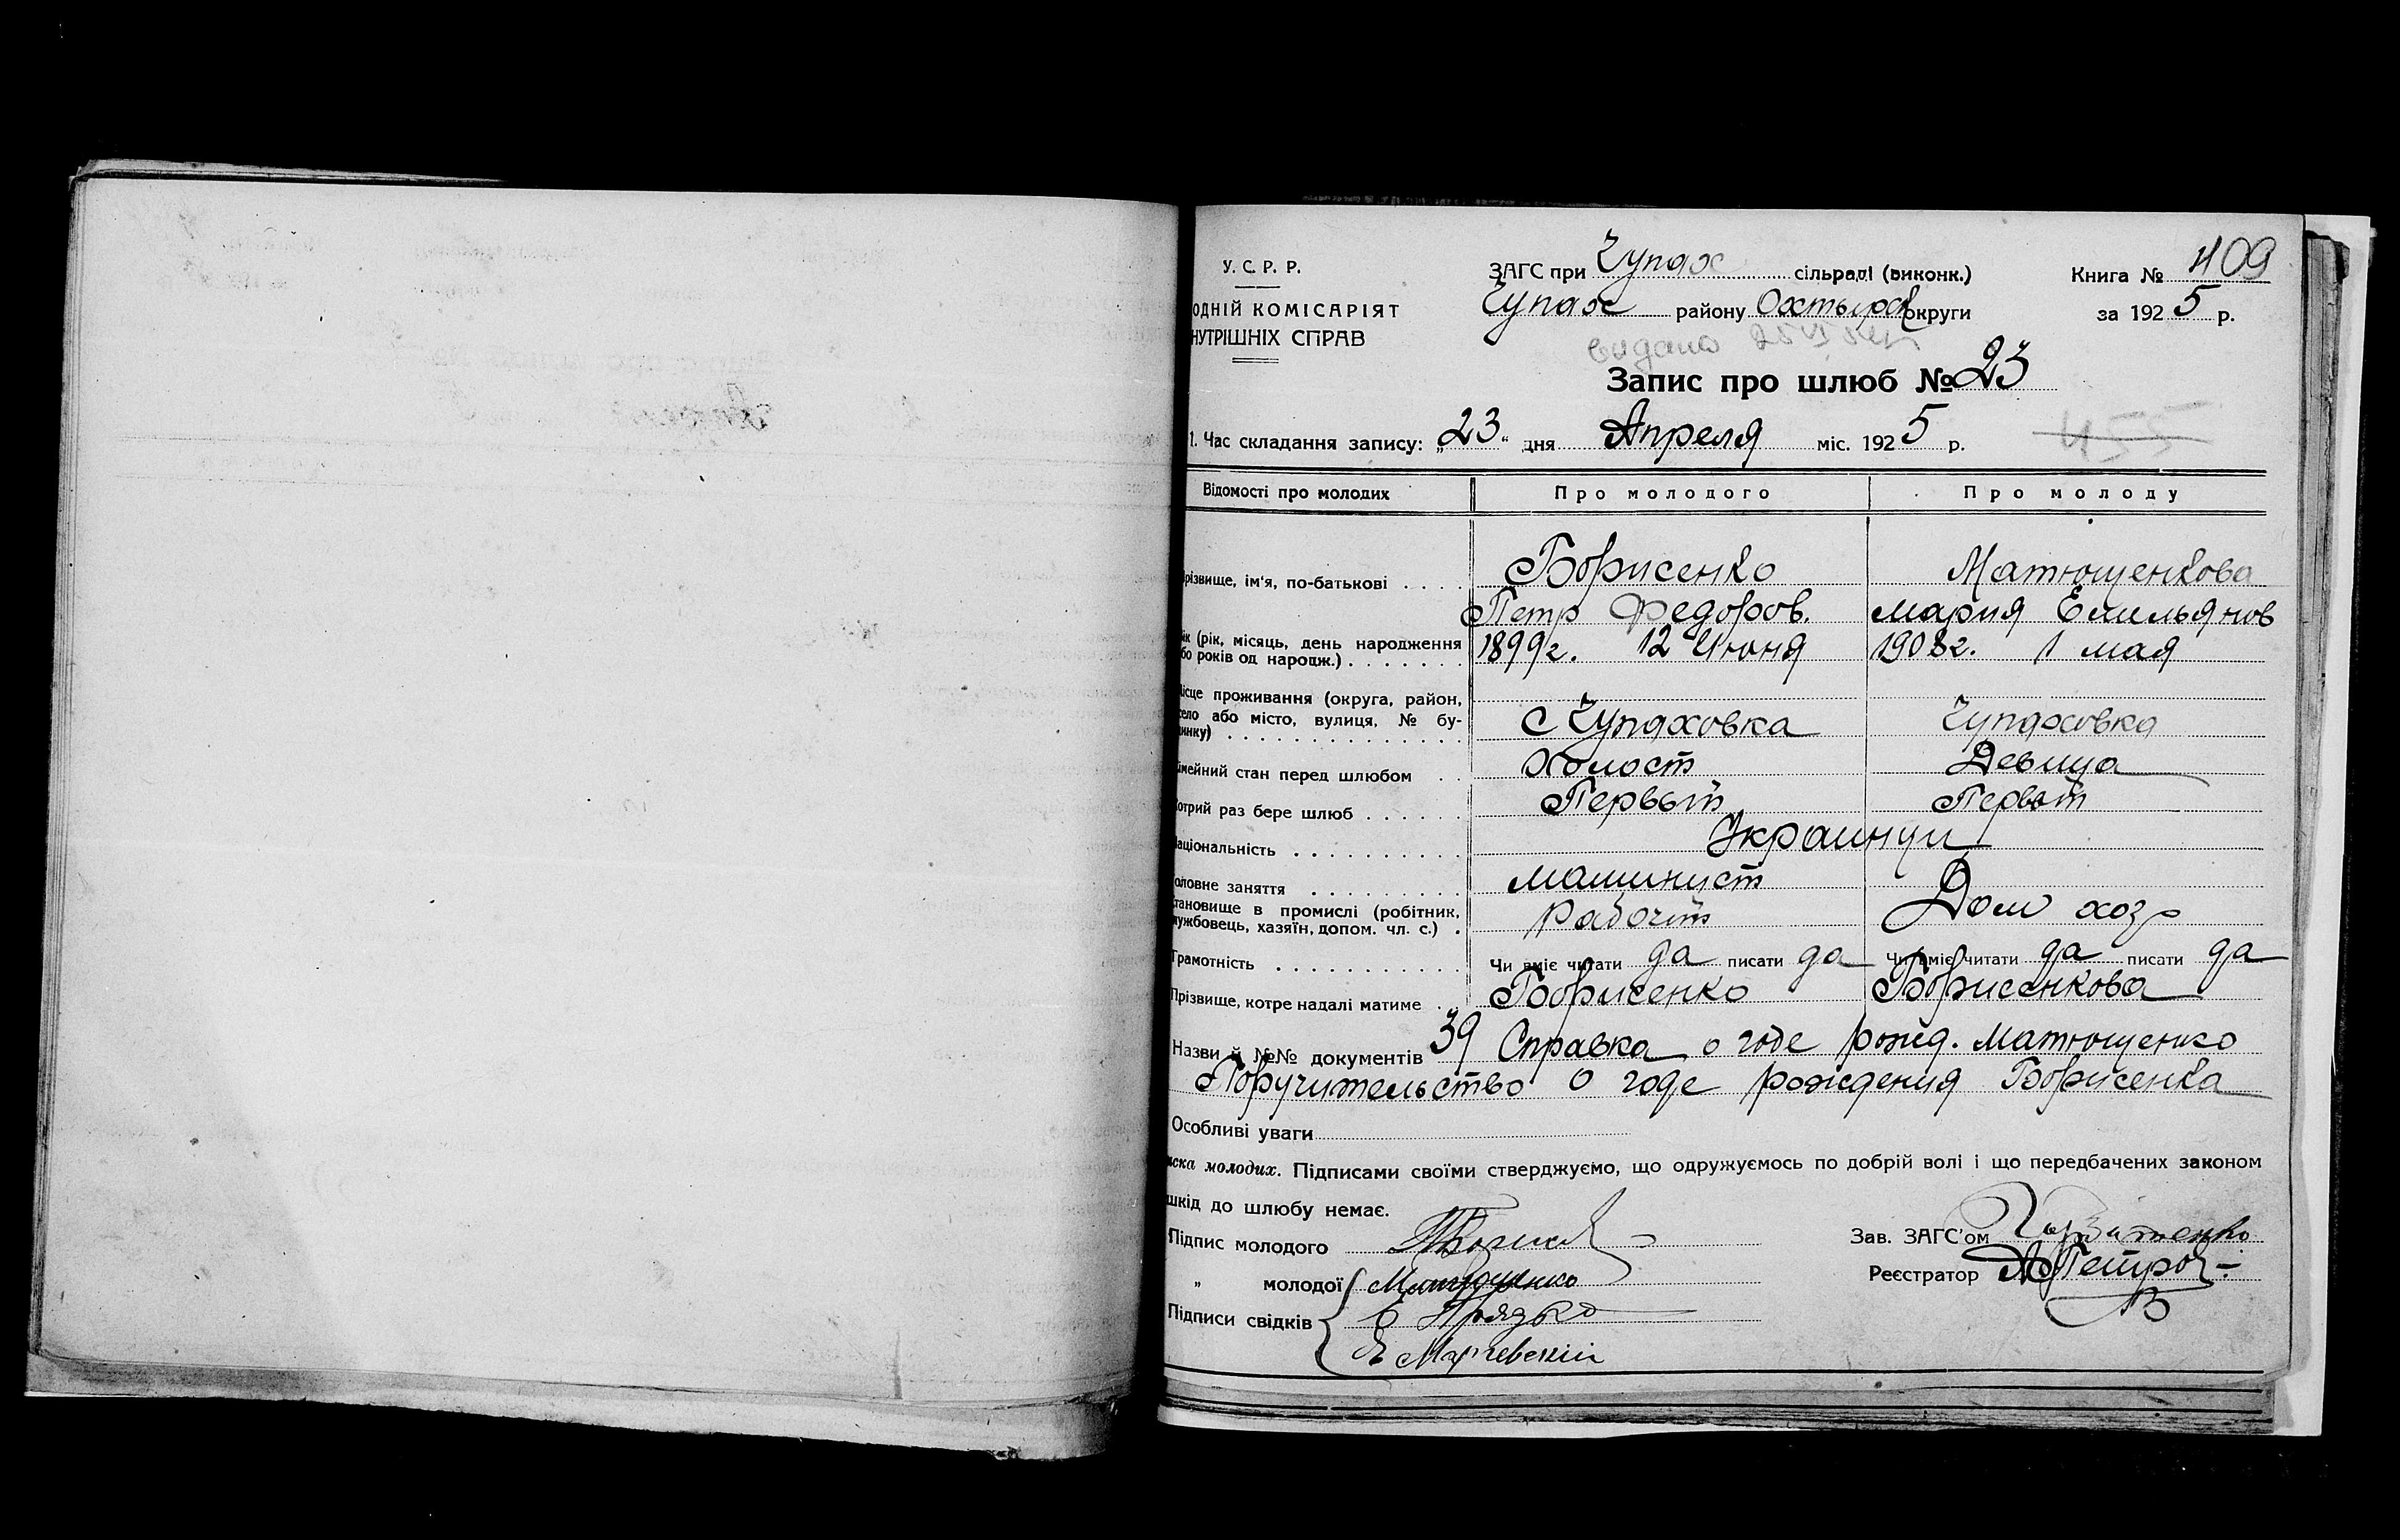 У. С. Р. Р.
ОДНІЙ КОМІСАРІЯТ
НУТРІШНІХ СПРАВ
ЗАГС при Чупах сільраді (виконк.)
Чупах району Охтырск округи
Книга № 409
за 1925 р.
видано 25 VI
Запис про шлюб № 23
1. Час складання запису: „23“ дня Апреля міс. 1925 р.
455
Відомості про молодих Про молодого Про молоду
різвище, ім'я, по-батькові . . . . Борисенко Матющенкова
Петр Федоров. Мария Емильянов
ік (рік, місяць, день народження
бо років од народж.) . . . . . . . 1899г. 12 Июня 1908г. 1 мая
ісце проживання (округа, район,
село або місто, вулиця, № бу-
инку) . . . . . . . . . . . . . . С Чупаховка Чупаховка
імейний стан перед шлюбом . . Холост Девица
отрий раз бере шлюб . . . . . . Первый Первый
аціональність . . . . . . . . . . Украинци
оловне заняття . . . . . . . . . машинист Дом хоз
тановище в промислі (робітник,
ужбовець, хазяїн, допом. чл. с.) . Рабочий
Грамотність . . . . . . . . . . . Чи вміє читати да писати да Чи вміє читати да писати да
Прізвище, котре надалі матиме . . Борисенко Борисенкова
Назви й №№ документів 39 Справка о годе рожд. Матющенко
Поручительство о годе рождения Борисенка
Особливі уваги
иска молодих. Підписами своїми стверджуємо, що одружуємось по добрій волі і що передбачених законом
шкід до шлюбу немає.
Підпис молодого
„ молодої Матющенко
Підписи свідків Прязко
Зав. ЗАГС'ом
Реєстратор Петров